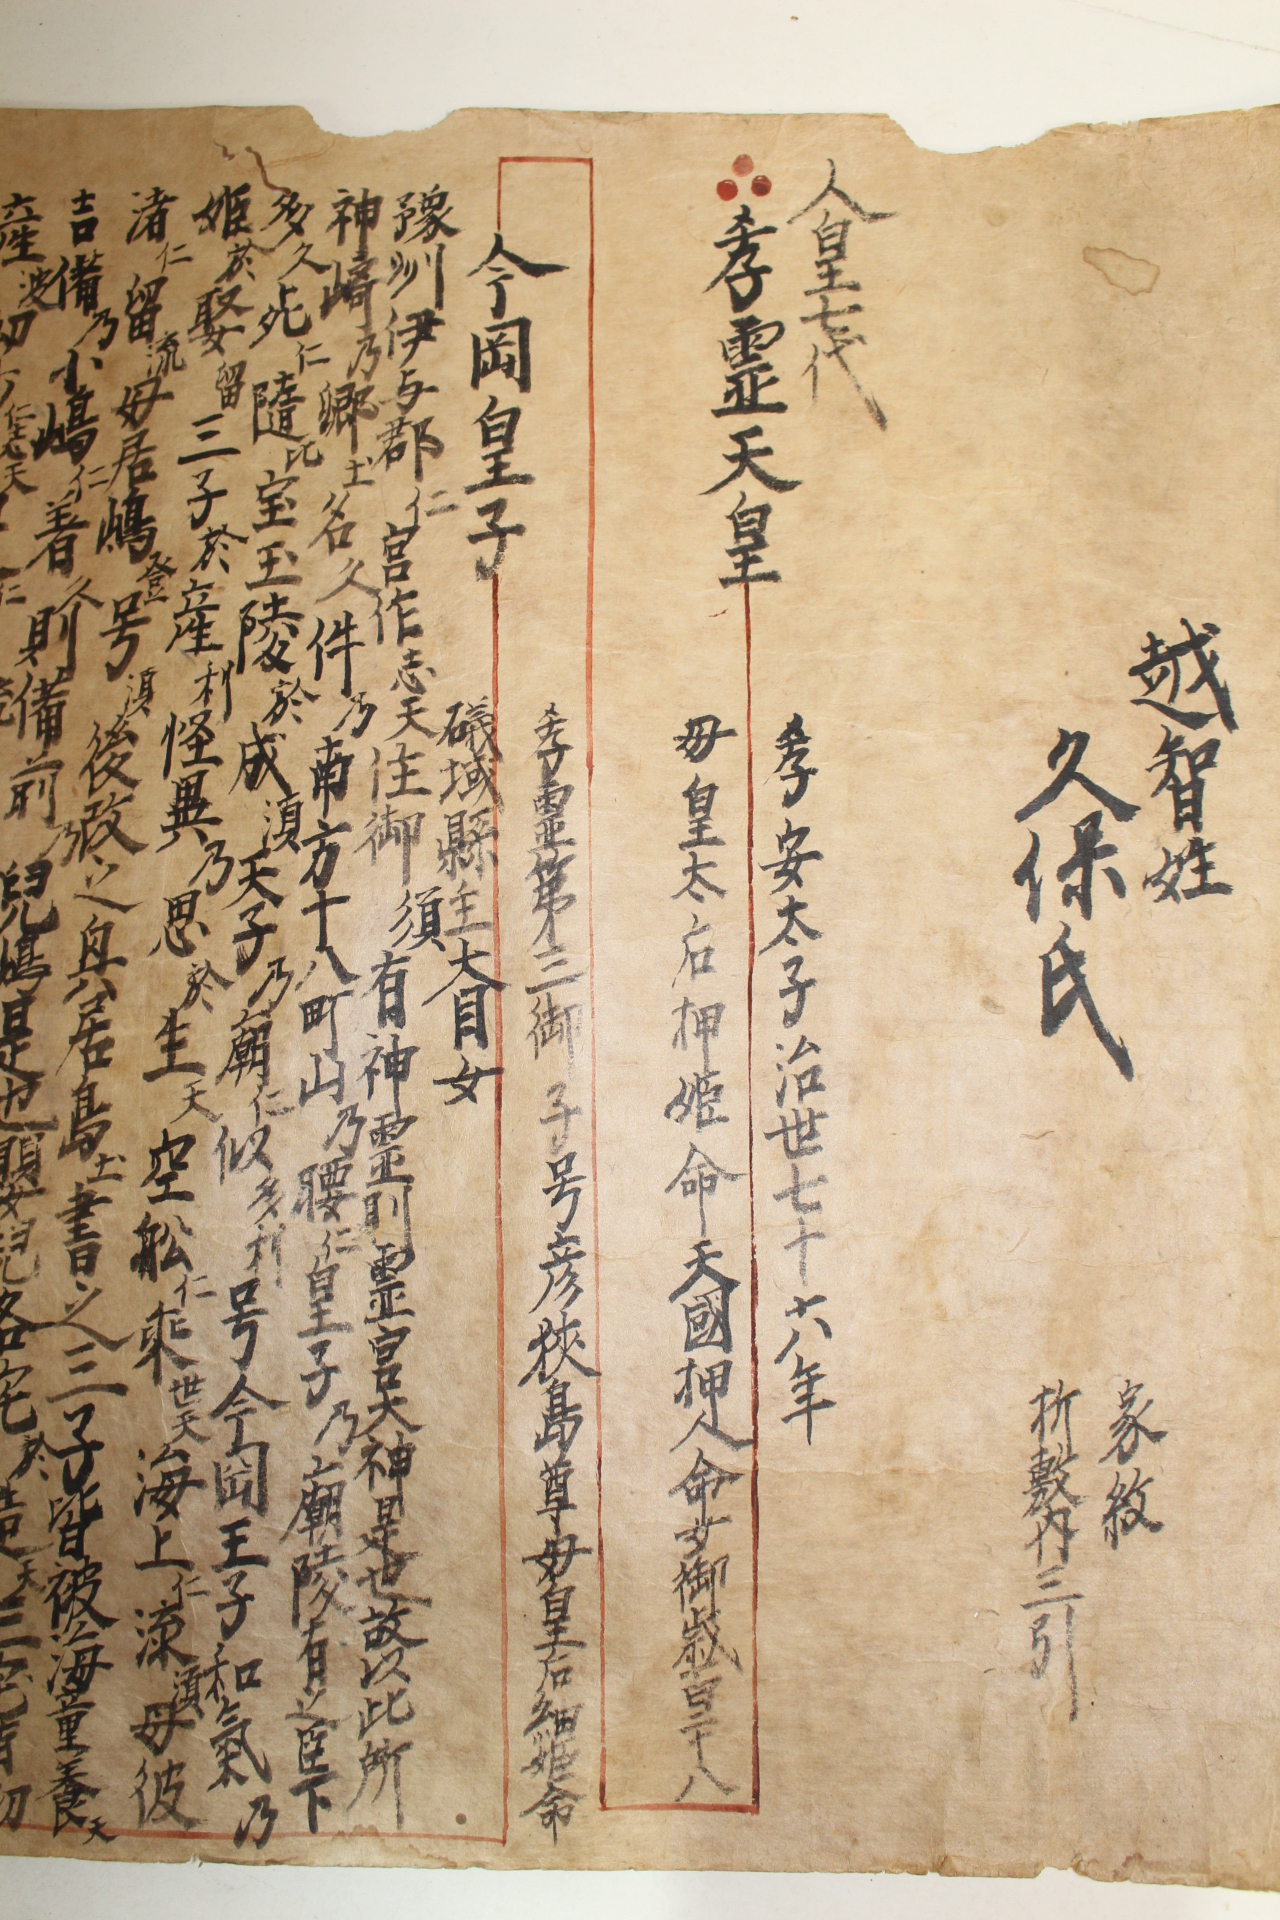 越智姓
久保氏
家紋
折敷内三引
人皇七代
孝霊天皇
孝安太子治世七十六年
母皇太后押姫命天國押人命女御歳百二十八
今岡皇子
孝霊第三御子号彦狭島尊母皇后細姫命
磯城縣主大目女
豫州伊与郡仁宮作志天住御須有神霊則霊宮大神是也故以此所
神﨑乃郷士名久件乃南方十八町山乃腰仁皇子乃廟陵有之臣下
多久死仁隨比宝玉陵於成須天子乃廟仁似多利号今岡王子和氣乃
姫於娶留三子於産利怪異乃思於生天空舩仁乗世天海上仁流須母彼
渚仁留流母居嶋登号須後改之興居島士書之三子皆被海童養天
吉備乃小嶋仁着久則備前乃児嶋是也